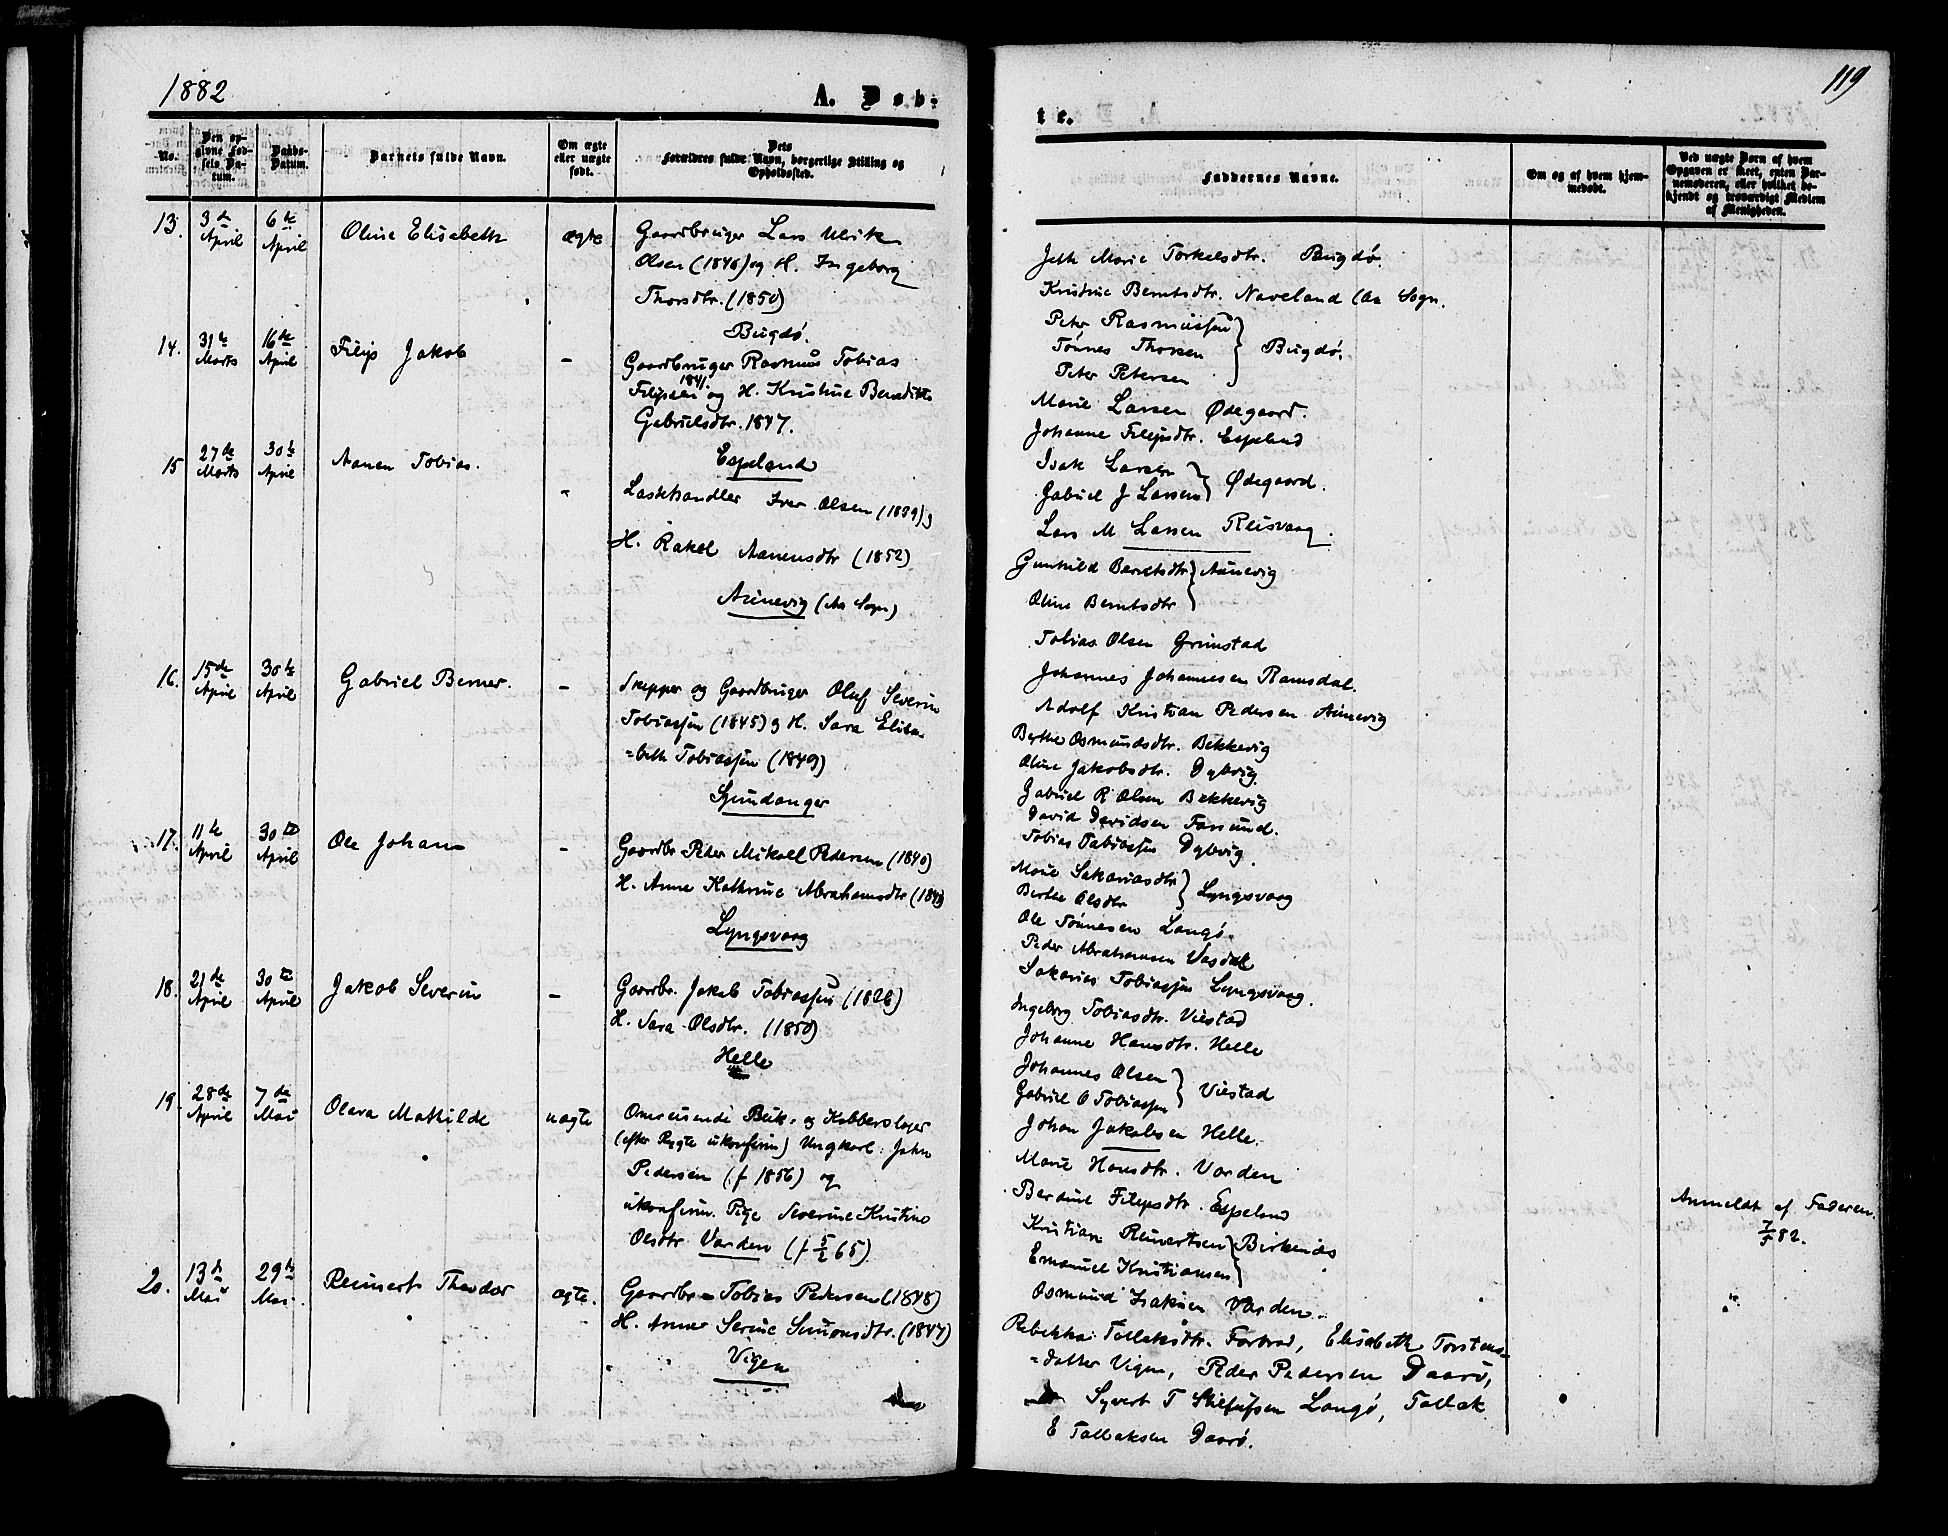 1882
A. Døb-
No.
Den op-
givne Fød-
sels Da-
tum.
Daabs-
Datum.
Barnets fulde Navn.
Om ægte
eller uægte
født.
Dets
Forældres fulde Navn, borgerlige Stilling og
Opholdssted.
13. 3de April 6te April Oline Elisabeth ægte Gaardbruger Lars Ulrik
Olsen (1846) og H. Ingeborg
Thorsdtr. (1850)
Bugdø.
14. 31te Marts 16de April Filip Jakob - Gaardbruger Rasmus Tobias
Filipsen 1841. og H. Kristine Benedikte
Gabrielsdtr. 1847.
Espeland
15 27de Marts 30te April Aanen Tobias. - Lasthandler Iver Olsen (1839) og
H. Rakel Aanensdtr (1852)
Aunevig (Aa Sogn)
16. 15de April 30te April Gabriel Berner. - Skipper og Gaardbruger Oluf Severin
Tobiassen (1845) og H. Sara Elisa-
=beth Tobiassen (1849)
Spindanger
17. 11te April 30te April Ole Johan - Gaardbr. Peder Mikael Pedersen (1840)
H. Anne Kathrine Abrahamsdtr (1843)
Lyngsvaag
18. 21de April 30te April Jakob Severin - Gaardbr. Jakob Tobiassen (1826)
H. Sara Olsdtr. (1850)
Helle
19. 28de April 7de Mai Olava Mathilde uægte Omreisende Blik- og Kobberslager
(efter Rygte ukonfirm) Ungkarl. John
Pedersen (f 1856) og
ukonfirm. Pige Severine Kristine
Olsdtr Varden (f 5/2 65)
20. 13de Mai 29de Mai. Reinert Theodor ægte. Gaardbr Tobias Pedersen (1848)
H. Anne Serine Simonsdtr. (1847)
Vigen
119
te.
Faddernes Navne.
Om og af hvem hjem-
medøbt.
Ved uægte Born af hvem
Opgaven er skeet, enten Bar-
nemoderen, eller hvilket be-
kjendt og troværdigt Medlem
af Menigheden.
Jeth Marie Torkelsdtr. Bugdø.
Kristine Berntsdtr. Naveland (Aa Sogn.
Peter Rasmussen
Tønnes Thorsen } Bugdø.
Peter Petersen
Marie Larsen Ødegaard.
Johanne Filipsdtr. Espeland
Isak Larsen
Gabriel J Larsen } Ødegaard.
Lars M Larsen Reisvaag.
Gunhild Berntsdtr } Aunevig
Oline Berntsdtr
Tobias Olsen Grimstad
Johannes Johannesen Ramsdal.
Adolf Kristian Pedersen Aunevig
Berthe Osmundsdtr. Bekkevig
Oline Jakobsdtr. Dybvig
Gabriel R Olsen Bekkevig
David Davidsen Farsund.
Tobias Tobiassen Dybvig.
Marie Sakariasdtr
Berthe Olsdtr } Lyngsvaag
Ole Tønnesen Langø.
Peder Abrahamsen Vasdal
Sakarias Tobiassen Lyngsvaag.
Ingeborg Tobiasdtr. Viestad
Johanne Hansdtr. Helle
Johannes Olsen
Gabriel O Tobiassen } Viestad
Johan Jakobsen Helle.
Marie Hansdtr. Varden
Berdine Filipsdtr. Espeland
Kristian Reinertsen } Birkenæs
Emanuel Kristiansen
Osmund Isaksen Varden.
Anmeldt af Faderen.
7/5 82.
Rebekka Tallaksdtr. Farbrod, Elisabeth Torstens=
=datter Vigen, Peder Pedersen Daarø,
Syvert T Stefufsen Langø, Tallak
E Tallaksen Daarø.